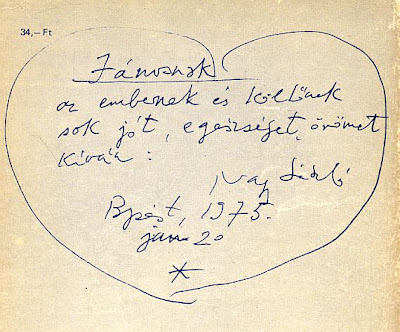 34,—Ft
Jánosnak
az embernek és költőnek
sok jót, egészséget, örömet
kíván:
Nagy László
Bpest, 1975.
jan. 20